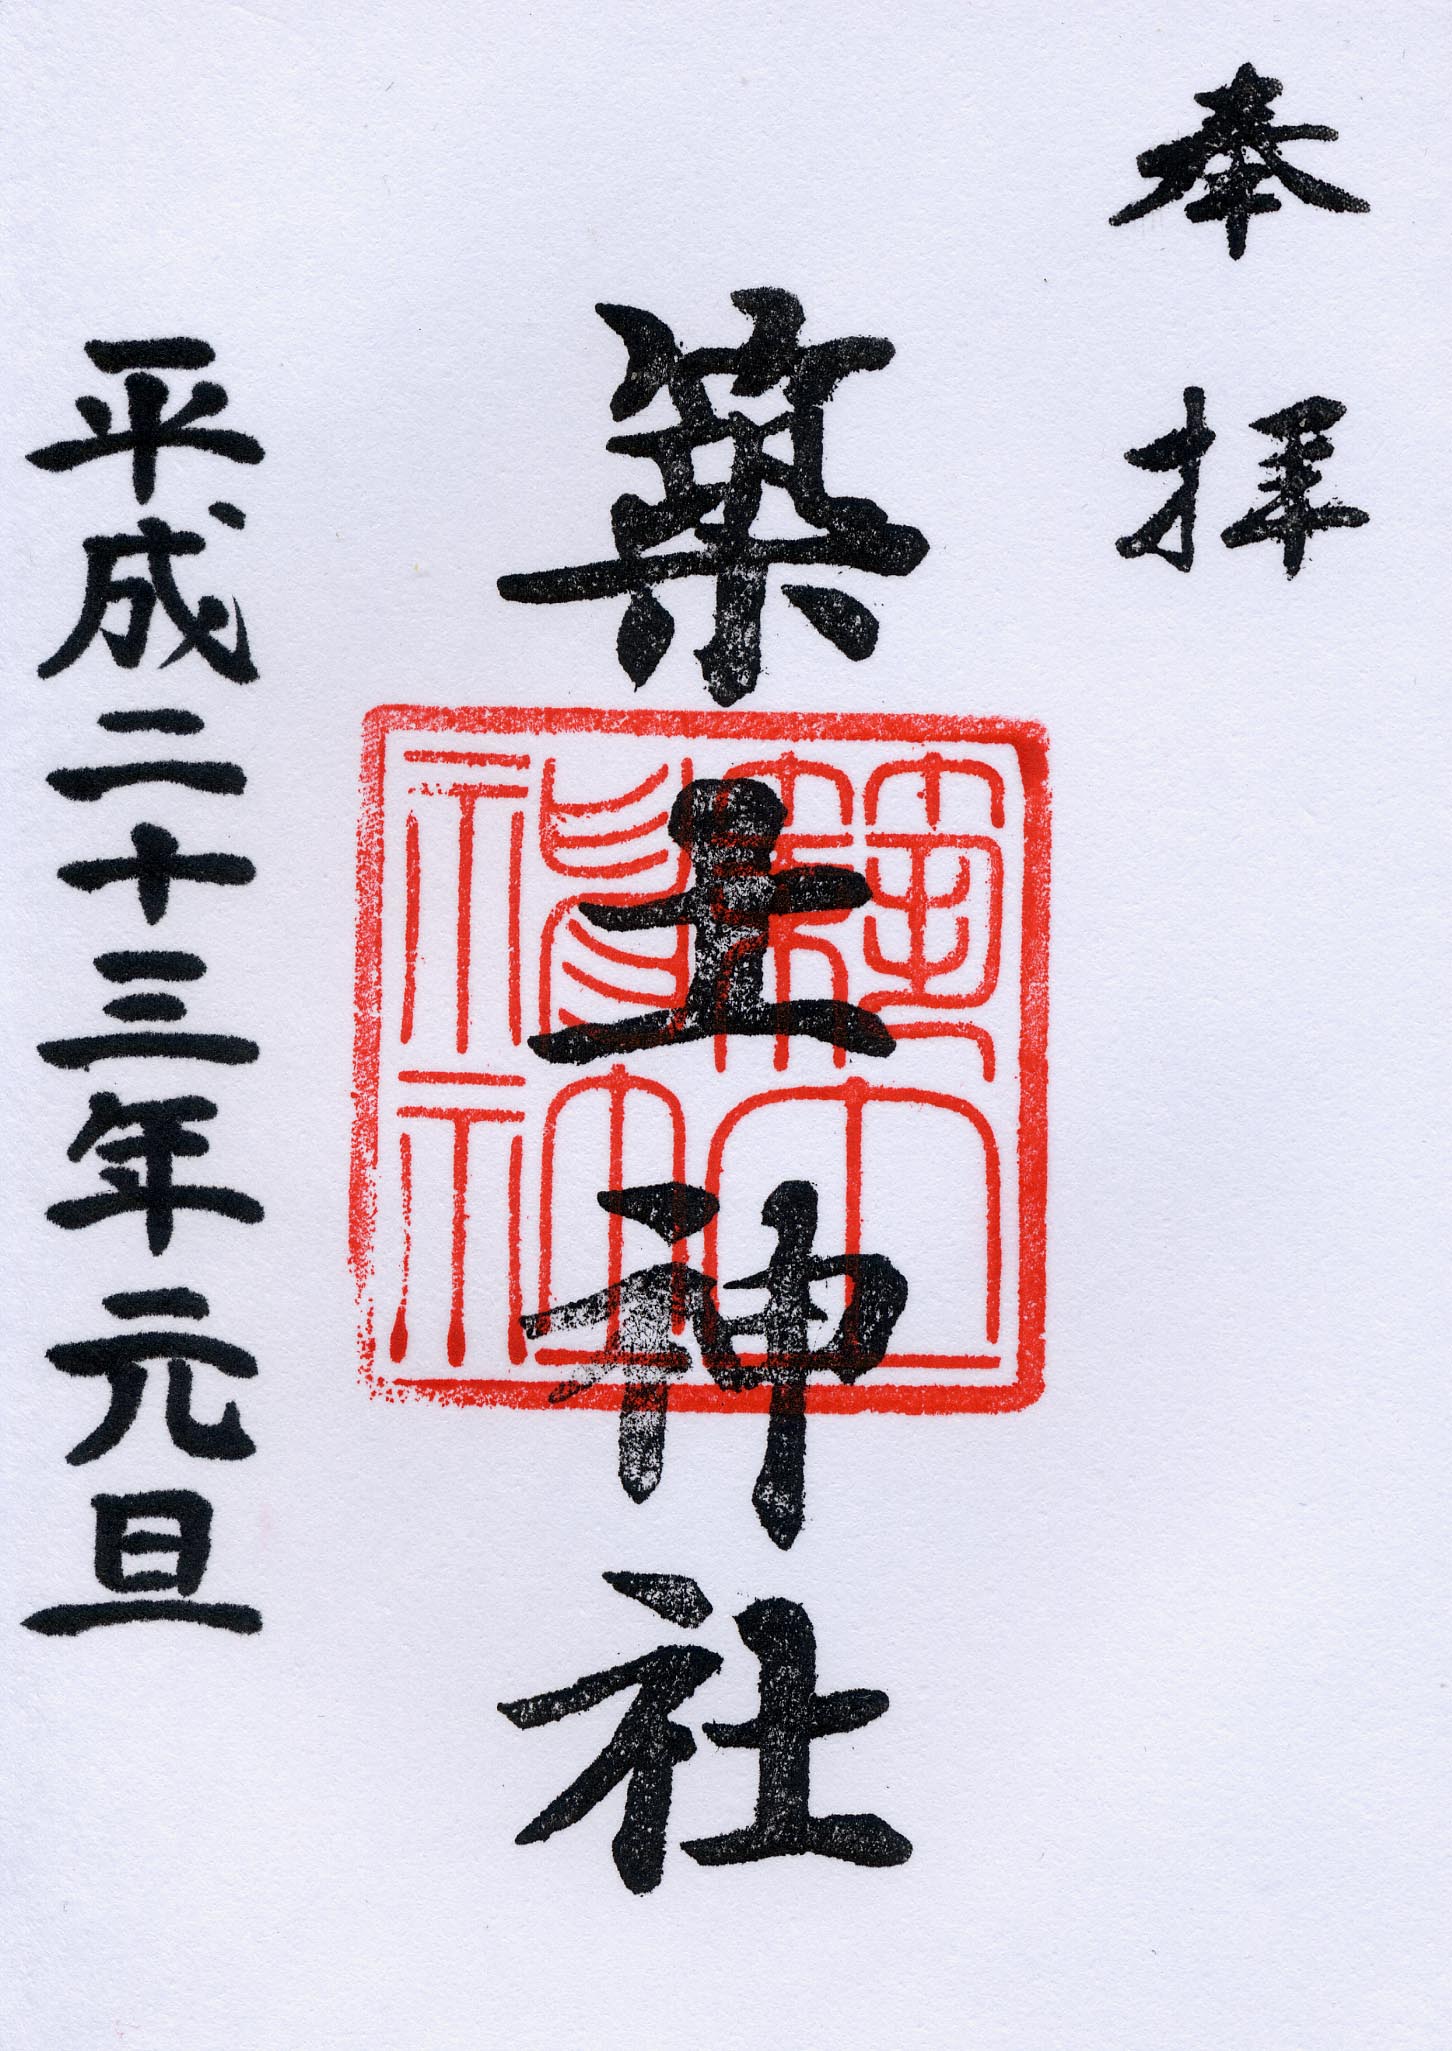 奉拝
築土神社
平成二十三年元旦
築土神社